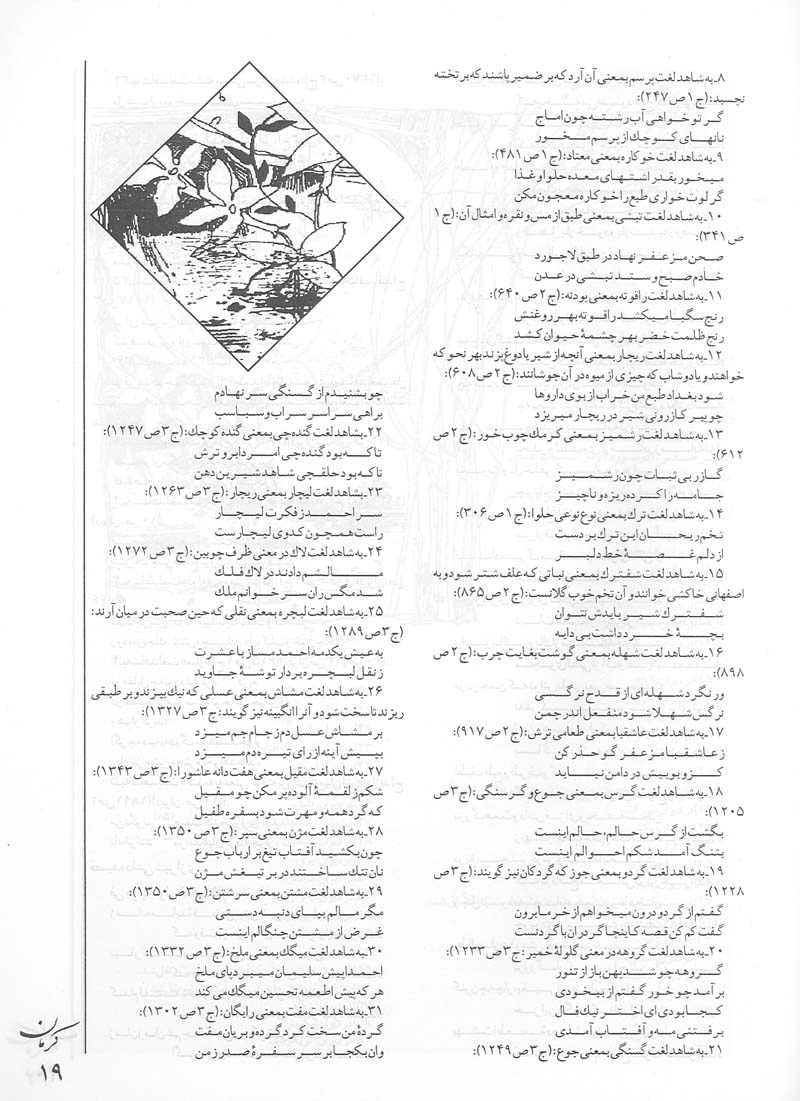 ۸ـ به شاهد لغت پرسم بمعنی آن آرد که بر ضمیر پاشند که بر تخته
نچسبد: (ج ۱ ص ۲۴۷):
گر تو خواهی آب رشته چون اماج
نانهای کوچك از پرسم مخور
۹ـ به شاهد لغت خوکاره بمعنی معتاد: (ج ۱ ص ۴۸۱):
میخور بقدر اشتهای معده حلوا و غذا
گر لوت خواری طبع را خوکاره معجون مکن
۱۰ـ به شاهد لغت تبشی بمعنی طبق از مس و نقره و امثال آن: (ج ۱
ص ۳۴۱):
صحن مزعفر نهاد در طبق لاجورد
خادم صبح و ستد تبشی در عدن
۱۱ـ به شاهد لغت راقوته بمعنی پودنه: (ج ۲ ص ۶۴۰):
رنج سگبا میکشد راقوته بهر روغنش
رنج ظلمت خضر بهر چشمهٔ حیوان کشد
۱۲ـ به شاهد لغت ریچار بمعنی آنچه از شیر یا دوغ پزند بهر نحو که
خواهند و یا دوشاب که چیزی از میوه در آن جوشانند: (ج ۲ ص ۶۰۸):
شود بغداد طبع من خراب از بوی داروها
چو پیر کازرونی شیر در ریچار میریزد
۱۳ـ به شاهد لغت رشمیز بمعنی کرمك چوب خور: (ج ۲ ص
۶۱۲):
گازر بی ثبات چون رشمیز
جامه را کرده ریزه و ناچیز
۱۴ـ به شاهد لغت ترك بمعنی نوع نوعی حلوا: (ج ۱ ص ۳۰۶):
تخم ریحان این ترك بر دست
از دلم غصهٔ خط دلبر
۱۵ـ به شاهد لغت شفترك بمعنی نباتی که علف شتر شود و به
اصفهانی خاکشی خوانند و آن تخم خوب گلانست: (ج ۲ ص ۸۶۵):
شفترك شیر بایدش نتوان
بچهٔ خرد داشت بی دایه
۱۶ـ به شاهد لغت شهله بمعنی گوشت بغایت چرب: (ج ۲ ص
۸۹۸):
ور نگرد شهله ای از قدح نرگسی
نرگس شهلا شود منفعل اندر چمن
۱۷ـ به شاهد لغت عاشقبا بمعنی طعامی ترش: (ج ۲ ص ۹۱۷):
ز عاشقبا مزعفر گو حذر کن
کزو بوییش در دامن نیاید
۱۸ـ به شاهد لغت گرس بمعنی جوع و گرسنگی: (ج ۳ ص
۱۲۰۵):
بگشت از گرس حالم، حالم اینست
بتنگ آمد شکم احوالم اینست
۱۹ـ به شاهد لغت گردو بمعنی جوز که گردکان نیز گویند: (ج ۳ ص
۱۲۲۸):
گفتم از گردو درون میخواهم از خرما برون
گفت کم کن قصه کاینجا گردران با گردنست
۲۰ـ به شاهد لغت گروهه در معنی گلولهٔ خمیر: ج ۳ ص ۱۲۳۳):
گروهه چو شد پهن باز از تنور
برآمد چو خور گفتم از بیخودی
کجا بودی ای اختر نیك فال
برفتنی مه و آفتاب آمدی
۲۱ـ به شاهد لغت گسنگی بمعنی جوع: (ج ۳ ص ۱۲۴۹):
چو بشنیدم از گسنگی سر نهادم
براهی سراسر سراب و سباسب
۲۲ـ بشاهد لغت گنده چی بمعنی گنده کوچك: (ج ۳ ص ۱۲۴۷):
تا که بود گنده چی امرد ابرو ترش
تا که بود حلقچی شاهد شیرین دهن
۲۳ـ بشاهد لغت لیچار بمعنی ریچار: (ج ۳ ص ۱۲۶۳):
سر احمد ز فکرت لیچار
راست همچون کدوی لیچارست
۲۴ـ به شاهد لغت لاك در معنی ظرف چوبین: (ج ۳ ص ۱۲۷۲):
مالشم دادند در لاك فلك
شد مگس ران سر خوانم ملك
۲۵ـ به شاهد لغت لبچره بمعنی نقلی که حین صحبت در میان آرند:
(ج ۳ ص ۱۲۸۹):
به عیش یکدمه احمد مساز با عشرت
ز نقل لبچره بردار توشهٔ جاوید
۲۶ـ به شاهد لغت مشاش بمعنی عسلی که نیك بپزند و بر طبقی
ریزند تا سخت شود و آنرا انگبینه نیز گویند: ج ۳ ص ۱۳۲۷):
بر مشاش عسل دم ز جام جم میزد
بپیش آینه از رای تیره دم میزد
۲۷ـ به شاهد لغت مقیل بمعنی هفت دانه عاشورا: (ج ۳ ص ۱۳۴۳):
شکم ز لقمهٔ آلوده پر مکن چو مقیل
که گرد همه و مهرت شود بسفره طفیل
۲۸ـ به شاهد لغت مژن بمعنی سپر: (ج ۳ ص ۱۳۵۰):
چون بکشید آفتاب تیغ بر ارباب جوع
نان تنك ساختند در بر تیغش مژن
۲۹ـ به شاهد لغت مشتن بمعنی سرشتن: (ج ۳ ص ۱۳۵۰):
مگر مالم بپای دنبه دستی
غرض از مشتن چنگالم اینست
۳۰ـ به شاهد لغت میگك بمعنی ملخ: (ج ۳ ص ۱۳۳۲):
احمدا پیش سلیمان میبرد پای ملخ
هر که پیش اطعمه تحسین میگك می کند
۳۱ـ به شاهد لغت مفت بمعنی رایگان: (ج ۳ ص ۱۳۰۲):
گردهٔ من سخت کرد گرده و بریان مفت
وان بکجا بر سر سفرهٔ صدر زمن
کرمان
۱۹